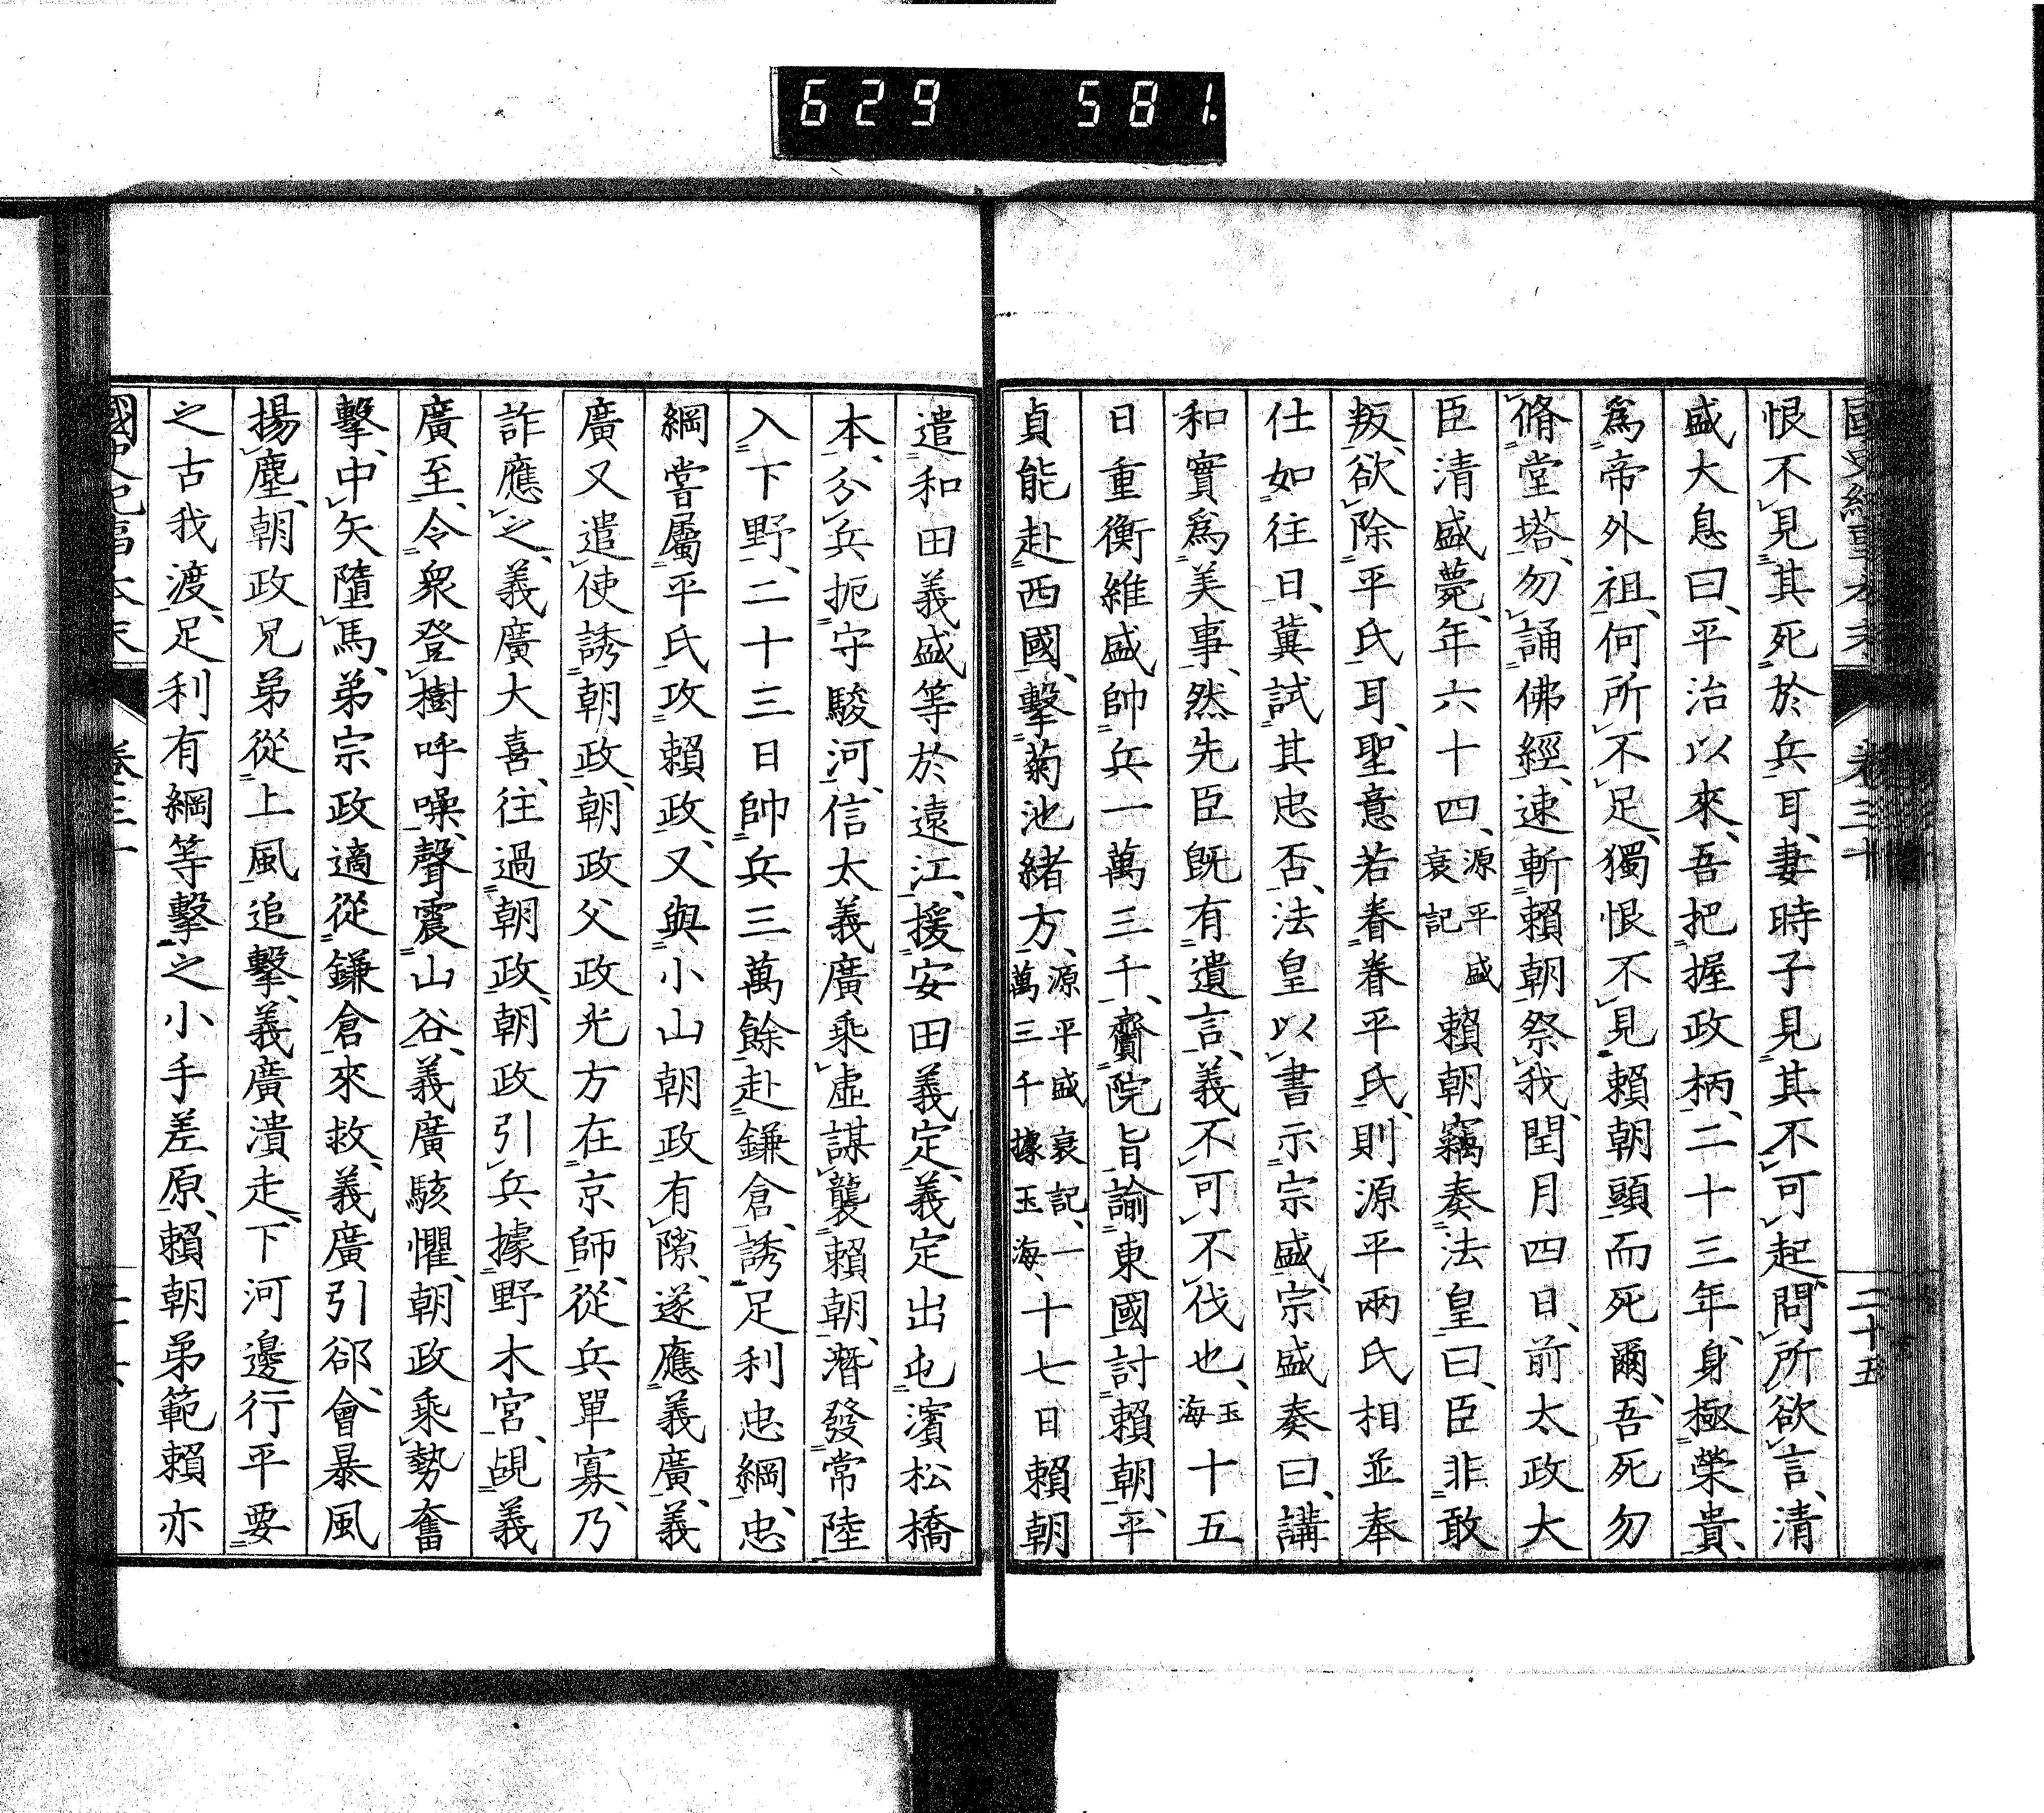 629 581.
恨不見其死於兵耳、妻時子見其不可起、問所欲言、清
盛大息曰、平治以來、吾把握政柄、二十三年、身極榮貴、
爲帝外祖、何所不足、獨恨不見賴朝頭而死爾、吾死勿
脩堂塔、勿誦佛經、速斬賴朝祭我、閏月四日、前太政大
臣清盛薨、年六十四、源平盛衰記賴朝竊奏法皇曰、臣非敢
叛、欲除平氏耳、聖意若眷眷平氏、則源平兩氏相並奉
仕如往日、冀試其忠否、法皇以書示宗盛、宗盛奏曰、講
和實爲美事、然先臣既有遺言、義不可不伐也、玉海十五
日重衡維盛帥兵一萬三千、齎院旨諭東國討賴朝、平
貞能赴西國、擊菊池緒方、源平盛衰記、一萬三千據玉海、十七日賴朝
遣和田義盛等於遠江、援安田義定、義定出屯濱松橋
本、分兵扼守駿河、信太義廣乘虛謀襲賴朝、潛發常陸
入下野、二十三日帥兵三萬餘赴鎌倉、誘足利忠綱、忠
綱嘗屬平氏攻賴政、又與小山朝政有隙、遂應義廣、義
廣又遣使誘朝政、朝政父政光方在京師、從兵單寡、乃
詐應之、義廣大喜、往過朝政、朝政引兵據野木宮、覘義
廣至、令衆登樹呼噪、聲震山谷、義廣駭懼、朝政乘勢奮
擊、中矢墮馬、弟宗政適從鎌倉來救、義廣引郤、會暴風
揚塵、朝政兄弟從上風追擊、義廣潰走、下河邊行平要
之古我渡、足利有綱等擊之小手差原、賴朝弟範賴亦